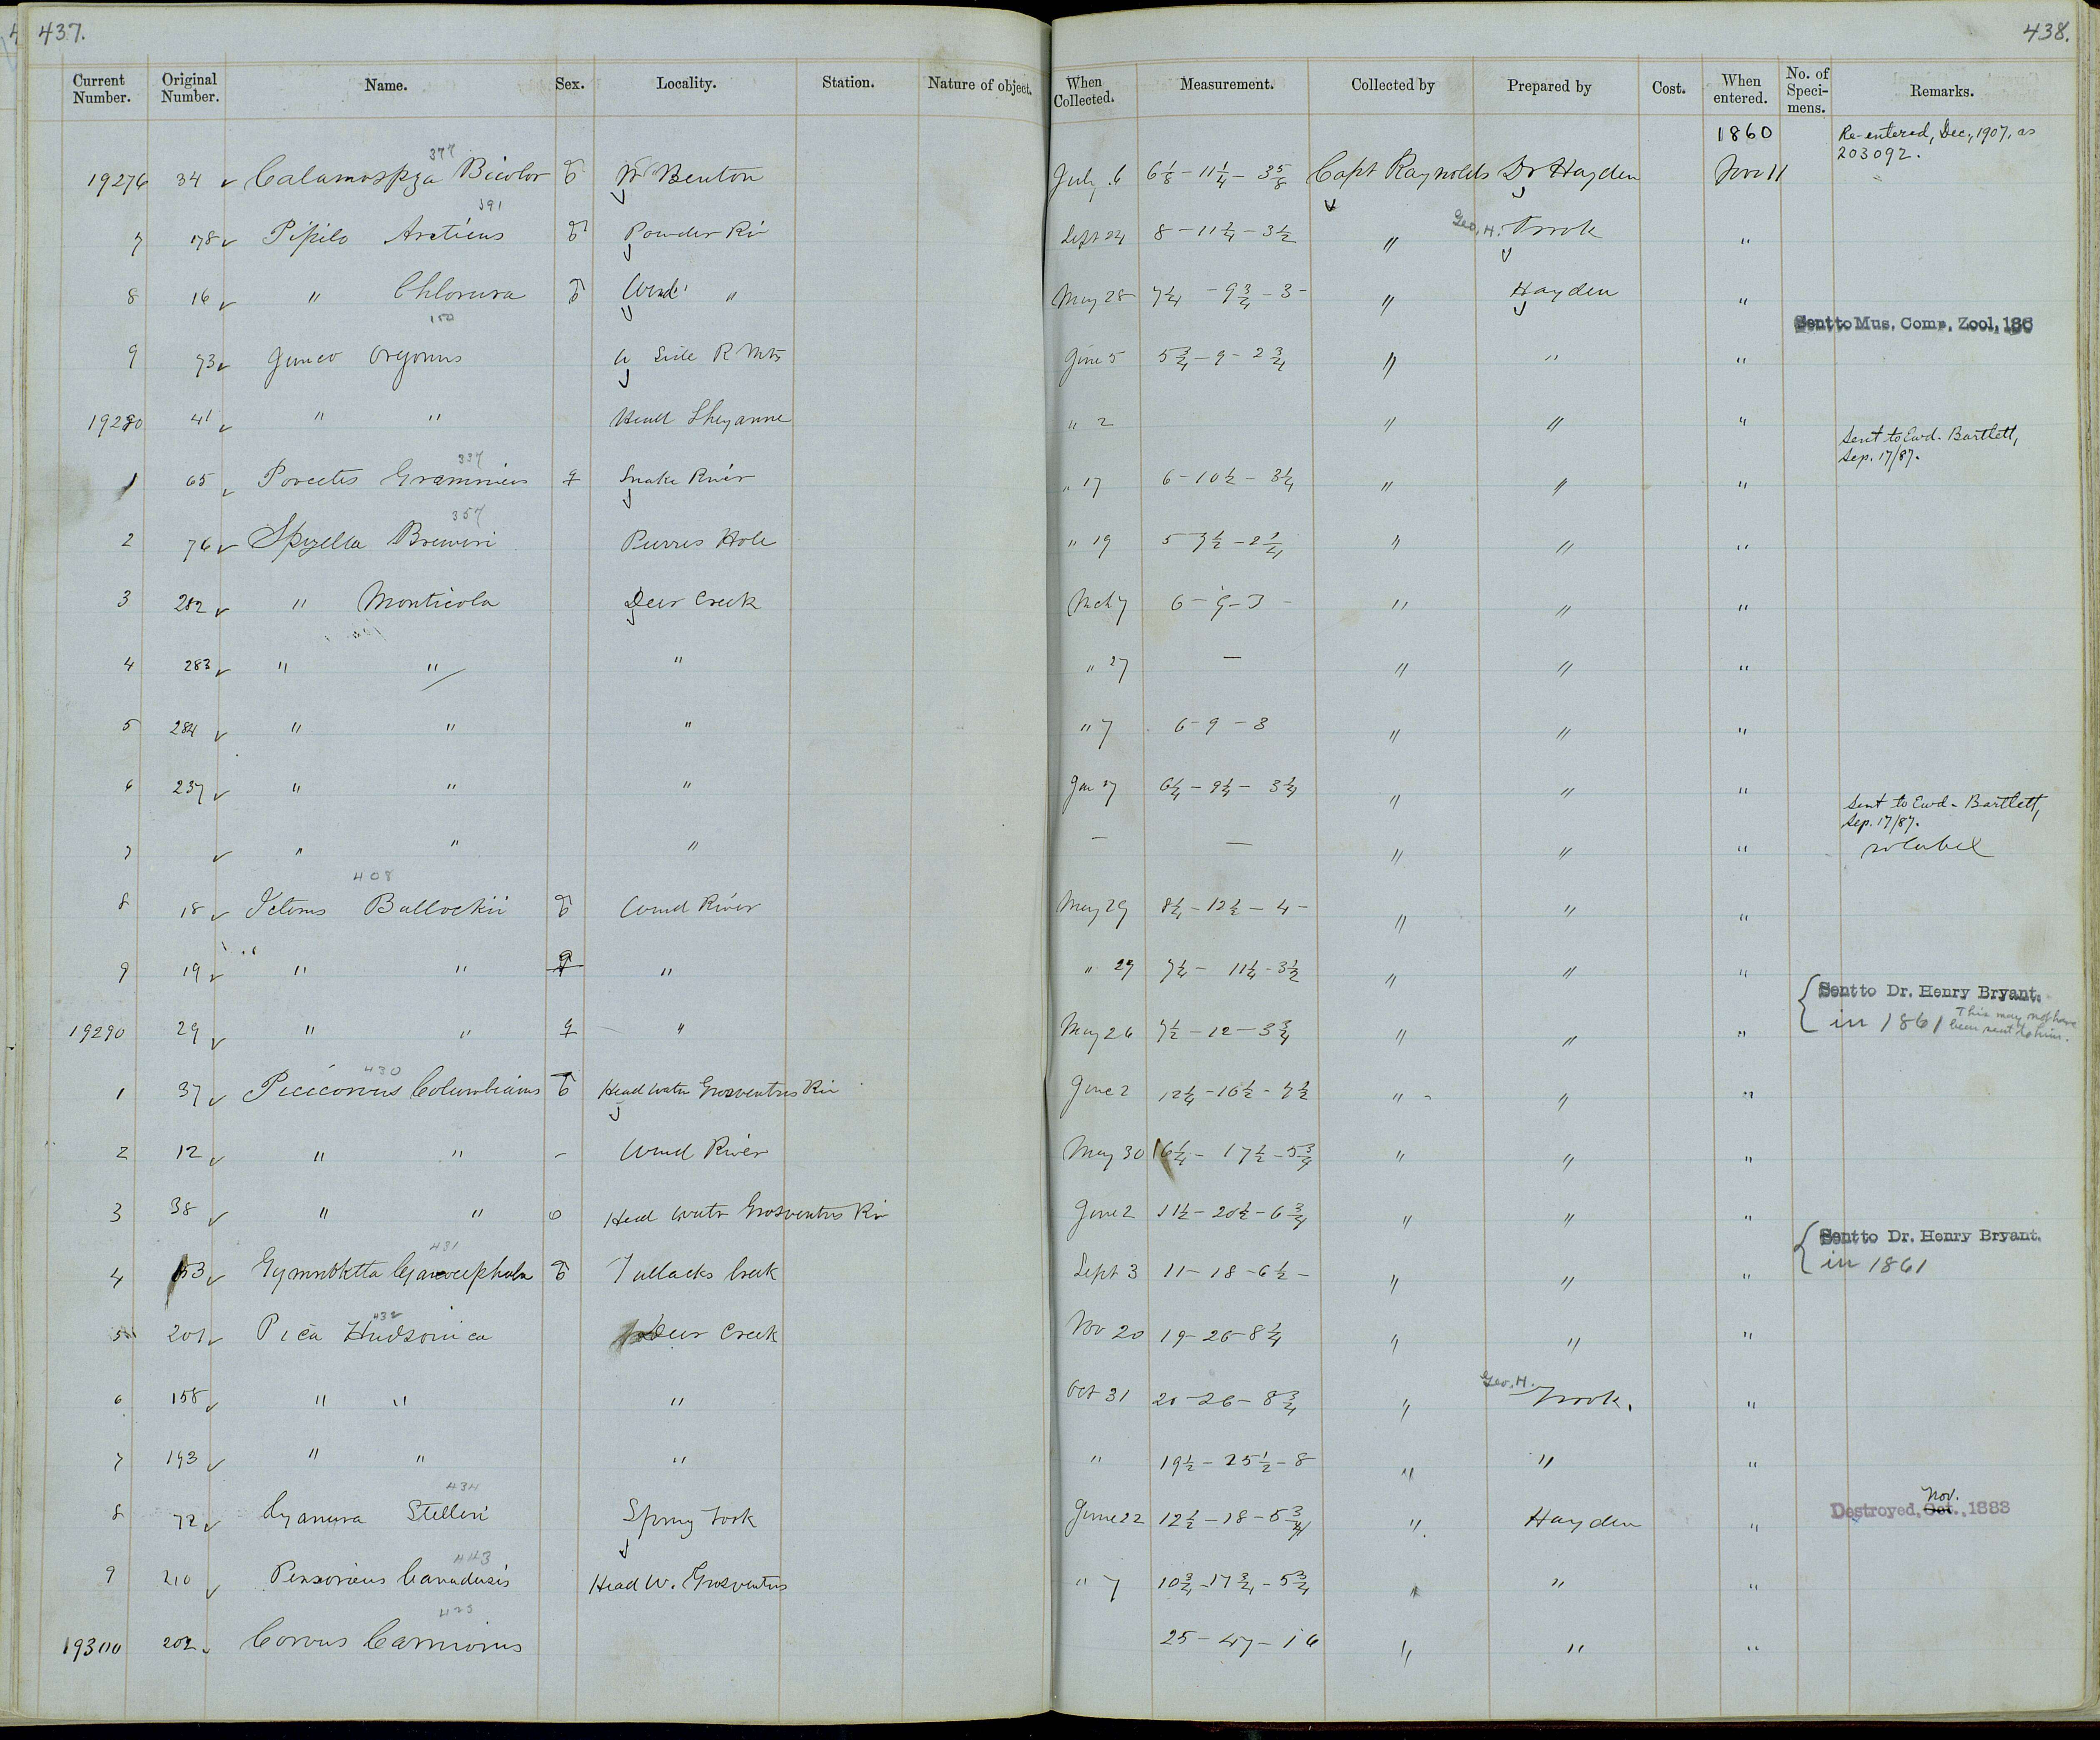 437.
438.
Current Number. Original Number. Name. Sex. Locality. Station. Nature of object. When Collected. Measurement. Collected by Prepared by Cost. When entered. No. of Speci-mens. Remarks.
1860 Re-entered, Dec., 1907, as 203092.
377
19276 34 Calamospza Bicolor ♂ Ft Benton July 6 6 1/8 - 11 1/4 - 3 5/8 Capt Raynolds Dr Hayden Nov 11
391
7 178 Pipilo Arcticus ♂ Powder Riv Sept 24 8 - 11 3/4 - 3 1/2 " Geo. H. Trook "
8 16 " Chlorura ♂ Wind " May 28 7 1/4 - 9 3/4 - 3 - " Hayden "
Sent to Mus. Comp. Zool, 186
9 73 Junco Oregonus W Side R Mts June 5 5 3/4 - 9 - 2 3/4 " " "
19280 41 " " Head Sheyanne " 2 " " "
Sent to Ewd. Bartlett, Sep. 17/87.
337
1 65 Poocetes Gramineus ♀ Snake River " 17 6 - 10 1/2 - 3 1/4 " " "
357
2 76 Spizella Breweri Pierres Hole " 19 5 - 7 1/2 - 2 1/4 " " "
3 282 " Monticola Deer Creek Mch 7 6 - 9 - 3 - " " "
4 283 " " " " 27 — " " "
5 284 " " " " 7 6 - 9 - 3 " " "
6 237 " " " Jan 17 6 1/4 - 9 1/4 - 3 1/4 " " "
Sent to Ewd. Bartlett, Sep. 17/87.
7 " " " — — " " " no label
408
8 18 Icterus Bullockii ♂ Wind River May 29 8 1/4 - 12 1/2 - 4 - " " "
9 19 " " ♀ " " 29 7 1/4 - 11 1/4 - 3 1/2 " " "
Sent to Dr. Henry Bryant. in 1861 This may not have been sent to him.
19290 29 " " ♀ " May 26 7 1/2 - 12 - 3 3/4 " " "
430
1 37 Picicorvus Columbianus ♂ Head water Grosventres Riv June 2 12 1/4 - 16 1/2 - 7 1/2 " " "
2 12 " " - Wind River May 30 16 1/4 - 17 1/2 - 5 3/4 " " "
3 38 " " o Head water Grosventres Riv June 2 11 1/2 - 20 1/2 - 6 3/4 " " "
Sent to Dr. Henry Bryant. in 1861
431
4 Gymnokitta Cyanocephala ♂ Tullocks Creek Sept 3 11 - 18 - 6 1/2 - " " "
432
5 201 Pica Hudsonica Deer Creek Nov 20 19 - 26 - 8 1/4 " " "
6 158 " " " Oct 31 20 - 26 - 8 3/4 " Geo. H. Trook. "
7 193 " " " " 19 1/2 - 25 1/2 - 8 " " "
434
8 72 Cyanura Stelleri Spring Fork June 22 12 1/2 - 18 - 5 3/4 " Hayden " Destroyed, Oct. Nov. 1883
443
9 210 Perisoreus Canadensis Head W. Grosventres " 7 10 3/4 - 17 3/4 - 5 3/4 " " "
19300 202 Corvus Carnivorus 25 - 47 - 16 " " "